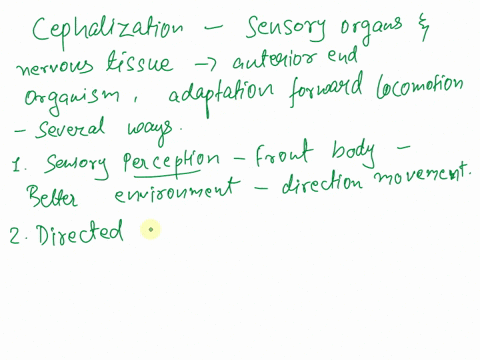 Cephalization - Sensory organs &
nervous tissue → anterior end
organism, adaptation forward locomotion
- Several ways.
1. Sensory Perception - Front body -
Better environment - direction movement.
2. Directed